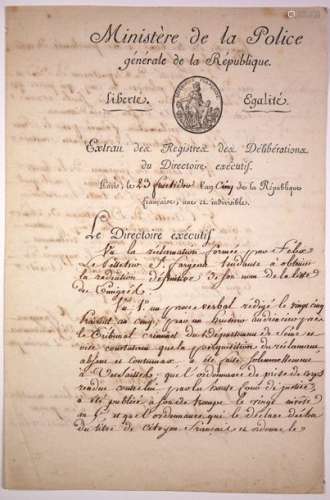 Ministère de la Police
générale de la République.
Liberté. Egalité.
Extrait des Registres des Délibérations
du Directoire exécutif.
Paris, le 23 fructidor l'an Cinq de la République
française, une et indivisible.
Le Directoire exécutif
Vu la réclamation formée par Felix
Le d'argent tendante à obtenir
la radiation définitive de son nom de la liste
des Emigrés.
Vu 1° un procès verbal rédigé le vingt cinq
an cinq, par un huissier audiencier près
le Tribunal criminel du Département de Seine et
Oise constatant que la perquisition du réclamant
absent et contumax a été faite solennellement
à Versailles, que l'ordonnance de prise de corps
rendue contre lui, par la haute Cour de justice,
a été publiée à son de trompe le vingt nivose
an 5, et que l'ordonnance qui le déclare déchu
du titre de Citoyen français et ordonne le